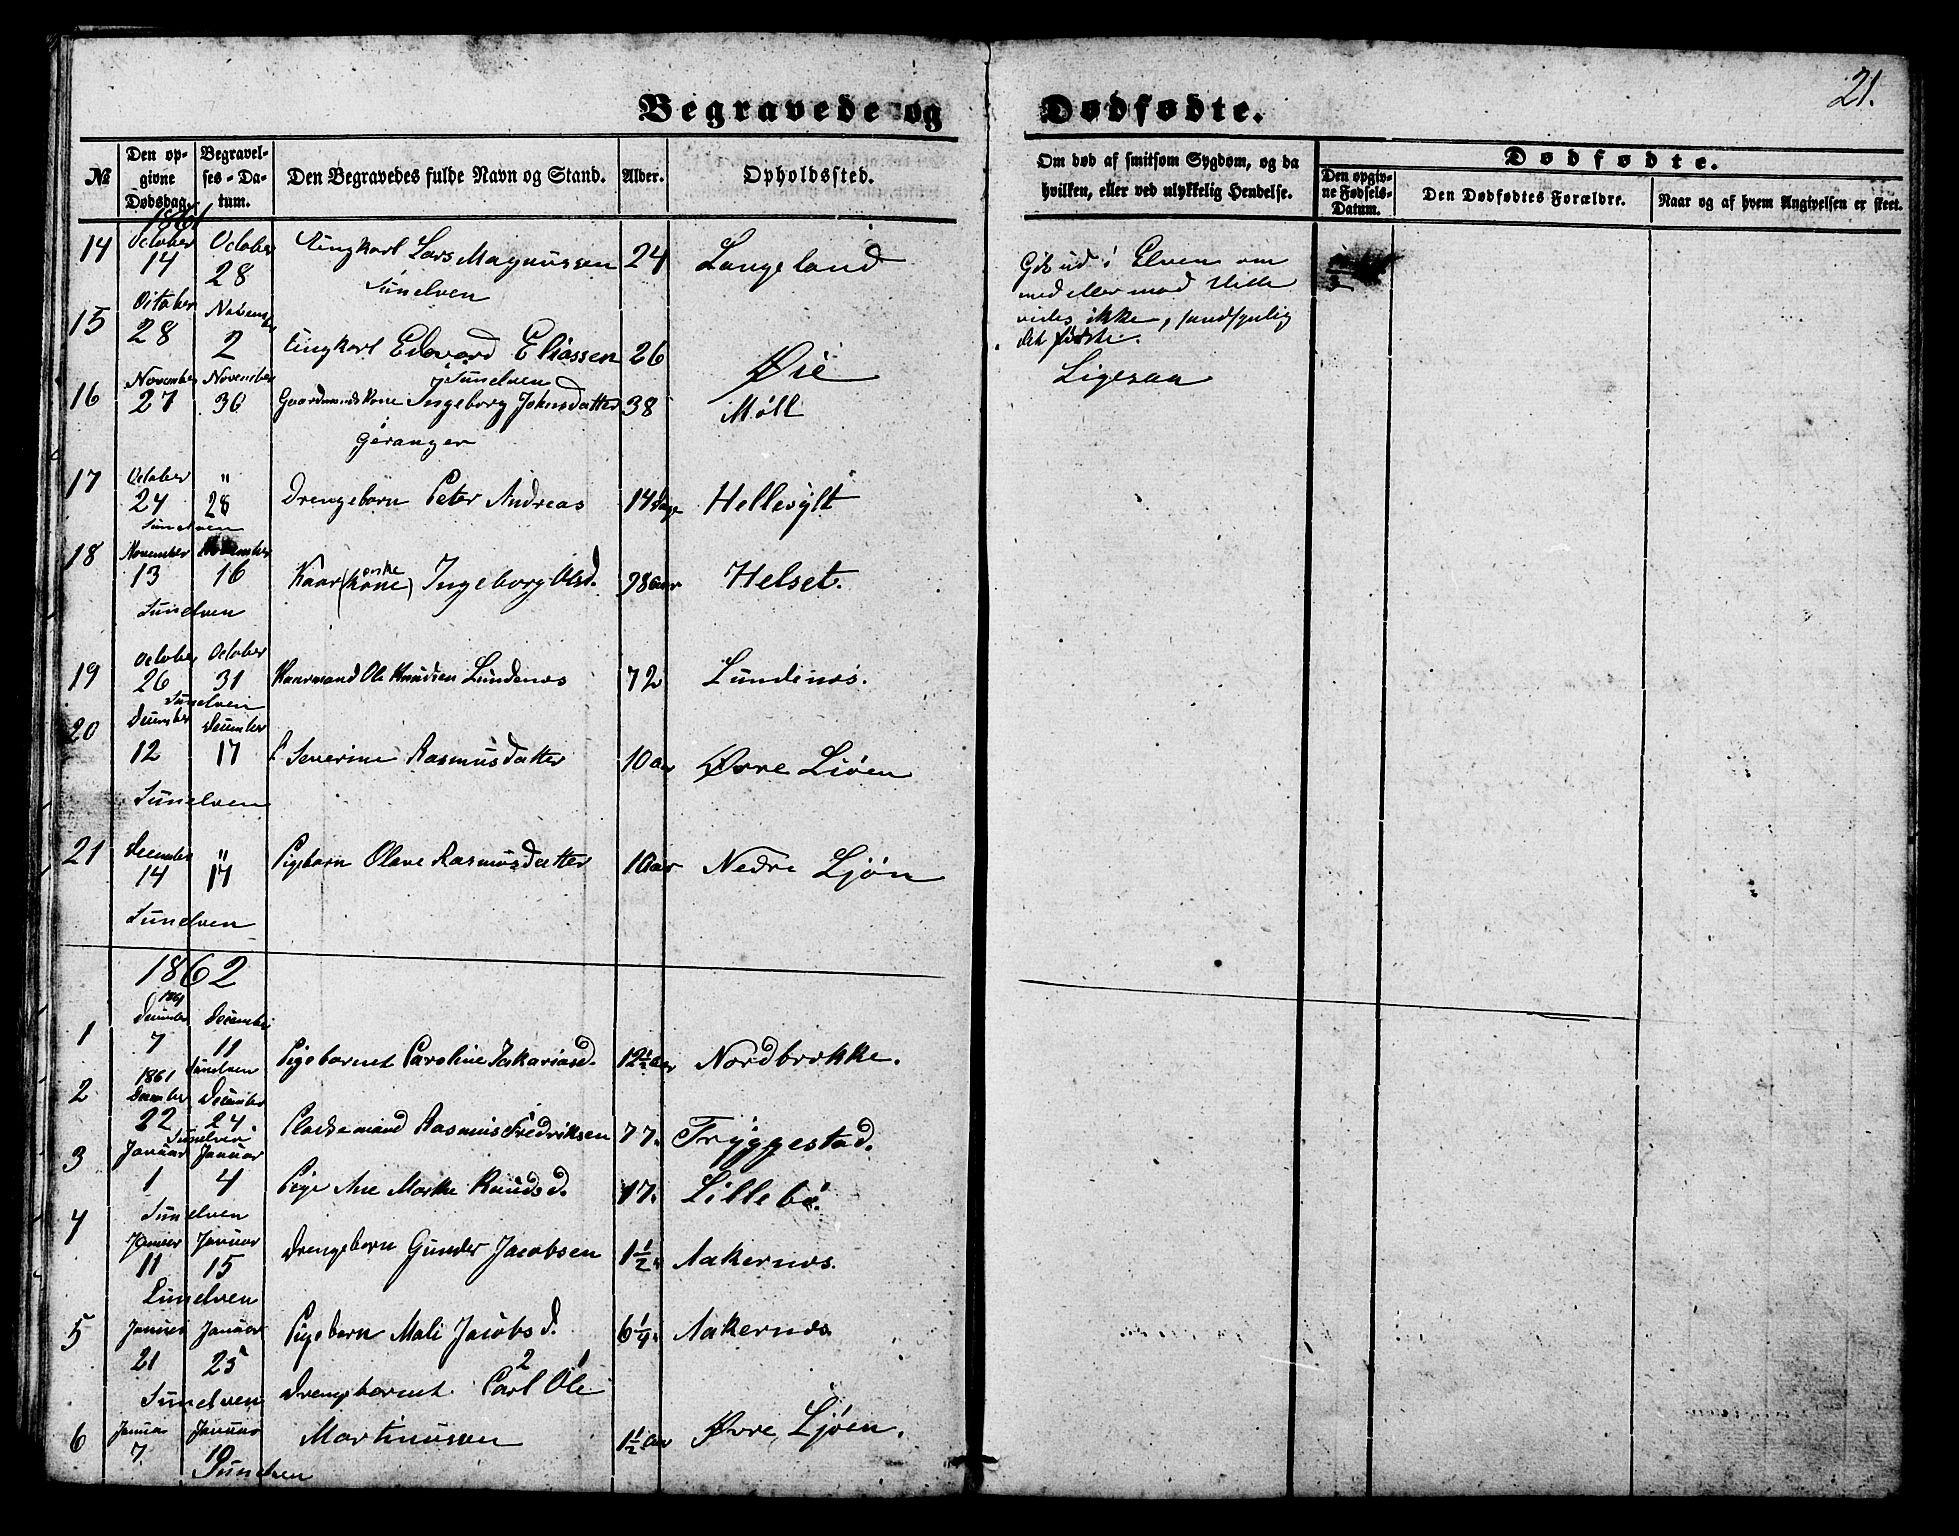 21.
Begravede og Dødfødte.
№
Den opgivne Dødsdag.
Begravelses-Datum.
Den Begravedes fulde Navn og Stand.
Alder.
Opholdssted.
Om død af smitsom Sygdom, og da hvilken, eller ved ulykkelig Hendelse.
Dødfødte.
Den opgivne Fødsels-Datum.
Den Dødfødtes Forældre.
Naar og af hvem Angivelsen er skeet.
1861
14 October 14 October 28 Ungkarl Lars Magnussen 24 Langeland
Sunelven
Gik ud i Elven om
med eller mod Villie
vides ikke, sandsynlig
det første.
15 October 28 November 2 Ungkarl Edvard Eliassen 26 Øie
Sunelven
Ligesaa
16 November 27 November 30 Gaardmandskone Ingeborg Johnsdatter 38 Møll
Geranger
17 October 24 " 28 Drengebarn Peter Andreas 14 Dage Hellesylt
Sunelven
18 November 13 November 16 Kaar(kone) Ingeborg Olsd. 78 aar Helset.
Sunelven
19 October 26 October 31 Kaarmand Ole Knudsen Lundenæs 72 Lundenæs.
Sunelven
20 December 12 December 17 Severine Rasmusdatter 10 Aar Øvre Liøen
Sunelven
21 December 14 " 17 Pigebarn Olave Rasmusdatter 10 aar Nedre Ljøn
Sunelven
1862
1 1861 December 7 December 11 Pigebarnet Caroline Zakariasd. 12½ Aar Nordbrekke.
Sunelven
2 1861 December 22 December 24. Pladsemand Rasmus Fredriksen 77. Tryggestad.
Sunelven
3 Januar 1 Januar 4 Pige Ane Marthe Knudsd. 17. Lillebø.
Sunelven
4 Januar 11 Januar 15 Drengebarn Gunder Jacobsen 1½ Aakernæs.
Sunelven
5 Januar 21 Januar 25 Pigebarn Mali Jacobsd. 6¼ Aakernæs
Sunelven
6 Januar 7 Januar 10 Drengebarnet Carl Ole
Martinussen 1½ Aar Øvre Ljøen.
Sunelven